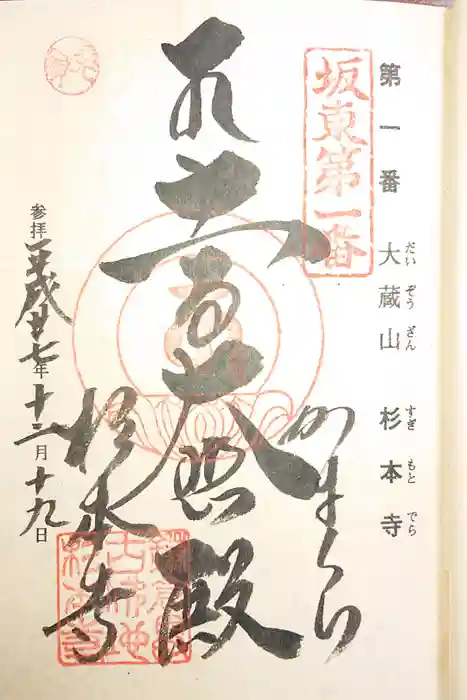 第一番 大蔵山 杉本寺
だいぞうざん すぎもとでら
坂東第一番
かまくら
十一面大悲殿
杉本寺
参拝 平成廿七年十二月十九日